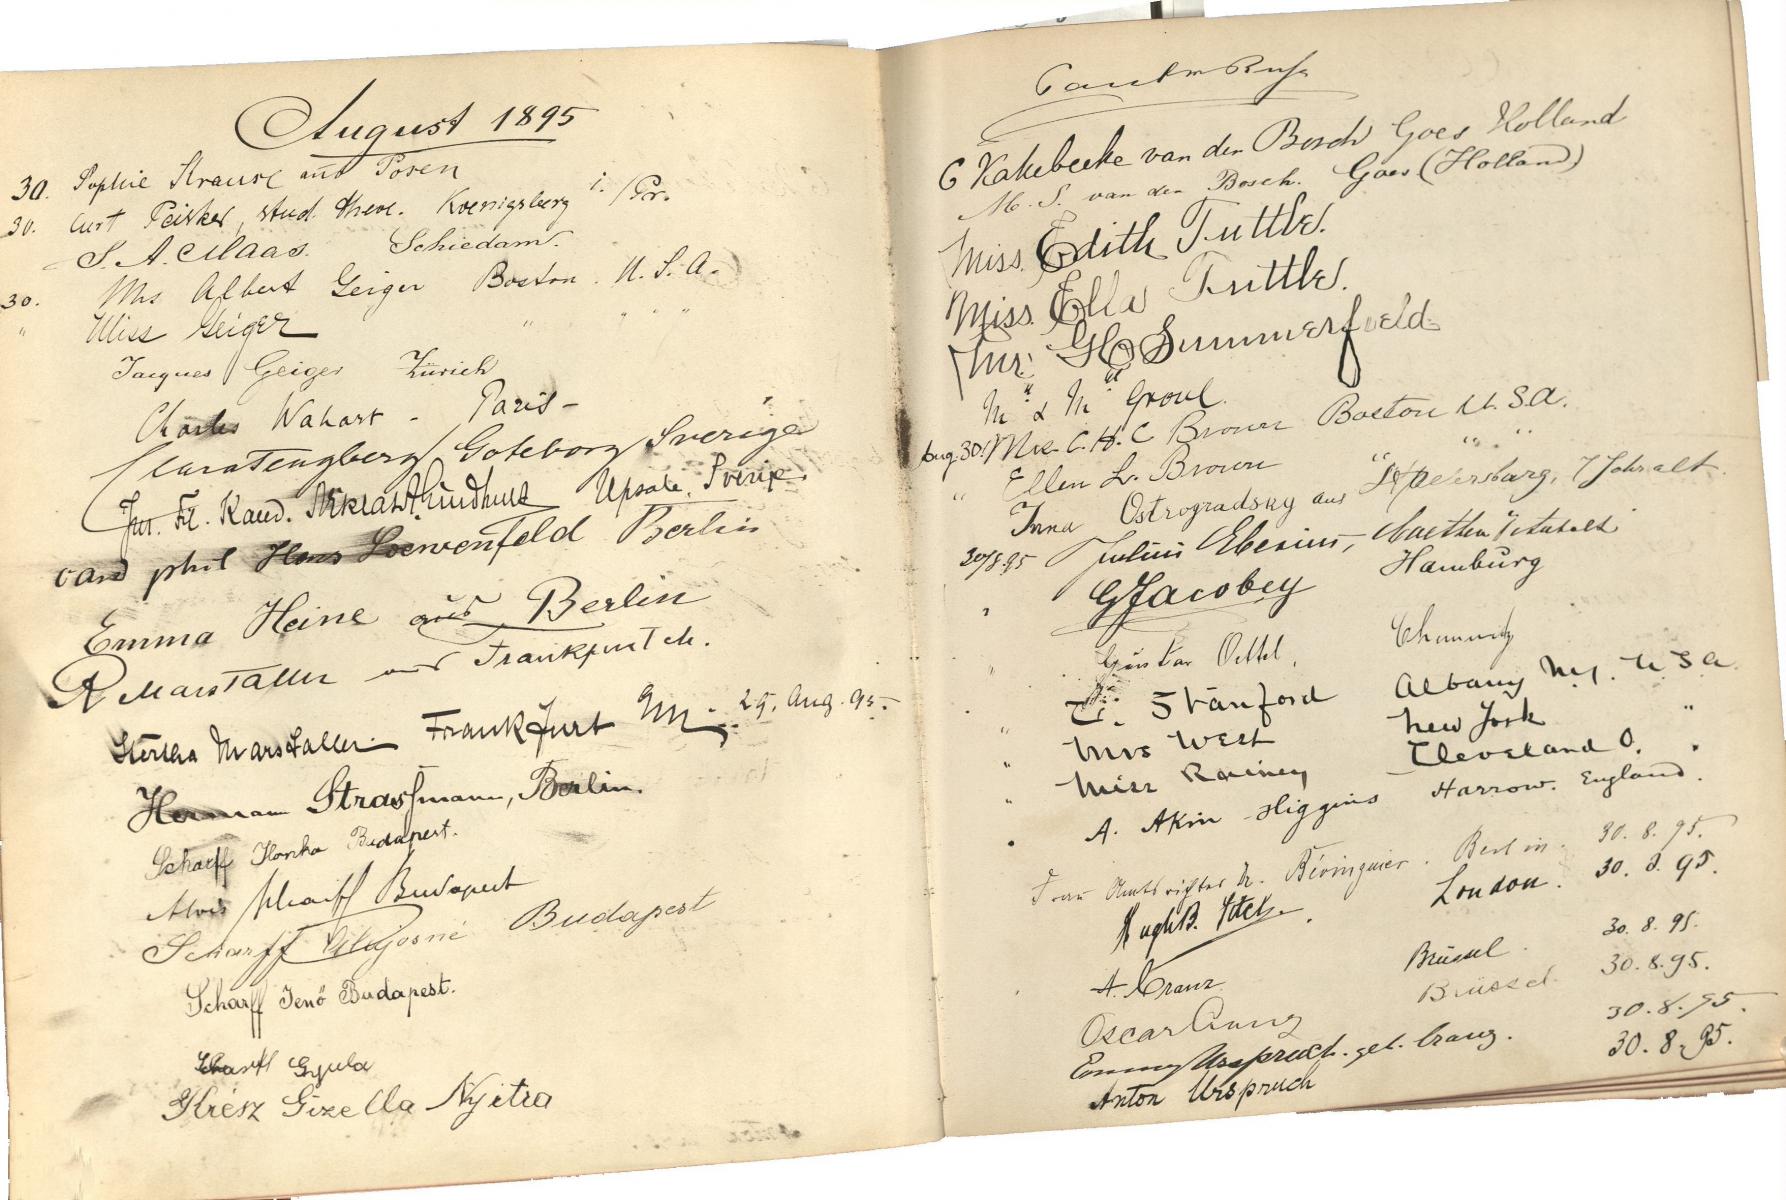 August 1895
30. Sophie Krause aus Posen
30. Curt Peisker, stud. theol. Koenigsberg i./Pr.
S. A. Maas. Schiedam.
30. Mrs Albert Geiger Boston. U. S. A.
" Miss Geiger " " " "
Jacques Geiger Zürich
Charles Wahart - Paris -
Clara Tengberg Göteborg Sverige
Jur. Fil. Kand. Lindhult Upsala. Sverige
cand phil Hans Loewenfeld Berlin
Emma Heine aus Berlin
R Marstaller aus Frankfurt M.
Hertha Marstaller Frankfurt M. 29. Aug. 95.
Herman Strassmann, Berlin.
Scharff Ilonka Budapest.
Alvis Scharff Budapest
Scharff Budapest
Scharff Jenö Budapest.
Scharff Gyula
Krész Gizella Nyitra
C Kakebeeke van den Bosch Goes Holland
M. S. van den Bosch. Goes (Holland)
Miss. Edith Tuttle.
Miss. Ella Tuttle.
Mr. Summerfield
Mr & Mrs Groul.
Aug. 30. Mrs C. H. C Brown Boston U. S. A.
" Ellen L. Brown " " "
Inna Ostrogradsky aus St Petersburg, 7 Jahr alt.
30/8.95 Julius Eberius, Coethen i/Anhalt
" G Jacobey Hamburg
" Gustav Oettel, Chemnitz
" E. Stanford Albany N.Y. U S A.
" Mrs West New York "
" Miss Rainey Cleveland O. "
" A. Akin-Higgins Harrow. England.
Frau Amtsrichter Béringuier. Berlin. 30. 8. 95.
Hugh B. London. 30. 8. 95.
A. Cranz Brüssel. 30. 8. 95.
Oscar Cranz Brüssel. 30. 8. 95.
Emmy Urspruch. geb. Cranz. 30. 8. 95.
Anton Urspruch 30. 8. 95.